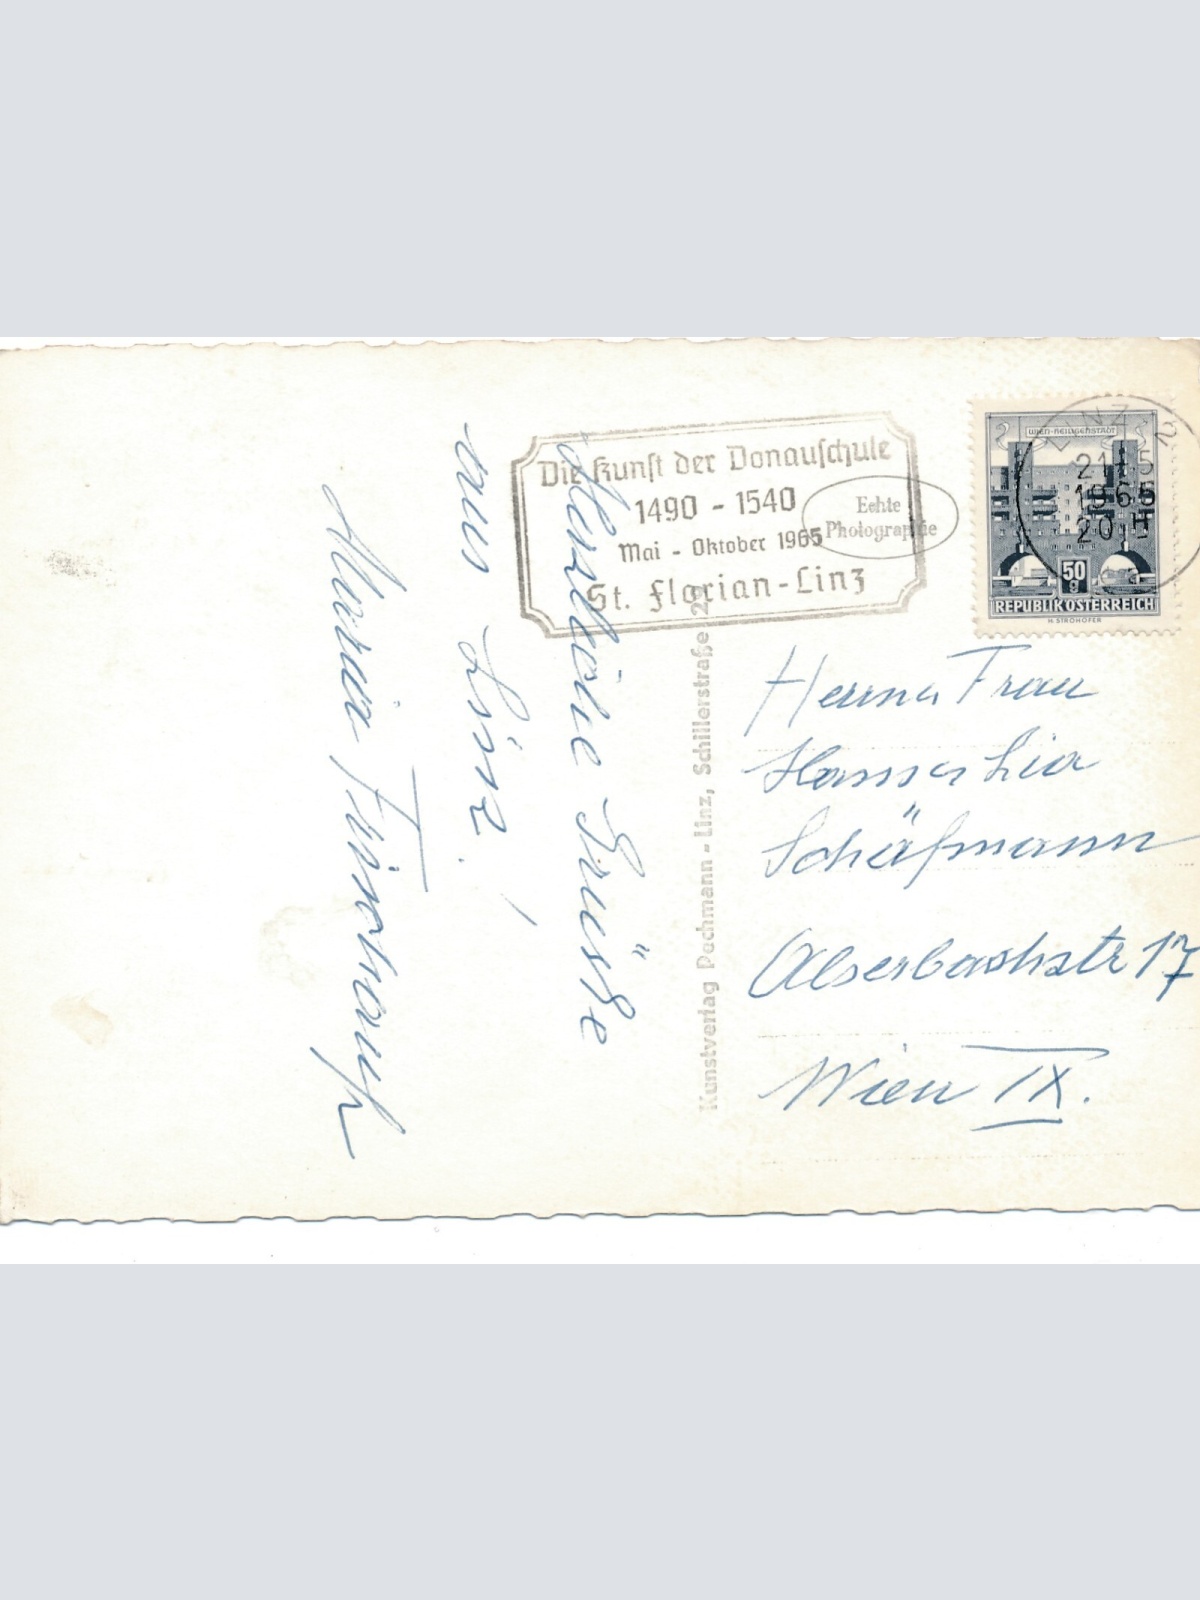 Die Kunst der Donauschule
1490 - 1540
Mai - Oktober 1965
St. Florian-Linz
Echte
Photographie
WIEN-HEILIGENSTADT
50
g
REPUBLIK ÖSTERREICH
H. STROHOFER
LINZ 2
21.5
1965
20 H
Herzliche Grüße
aus Linz!
Maria
Kunstverlag Pechmann - Linz, Schillerstraße 29
Frau
Lia
Schäfmann
Alserbachstr 17
Wien IX.